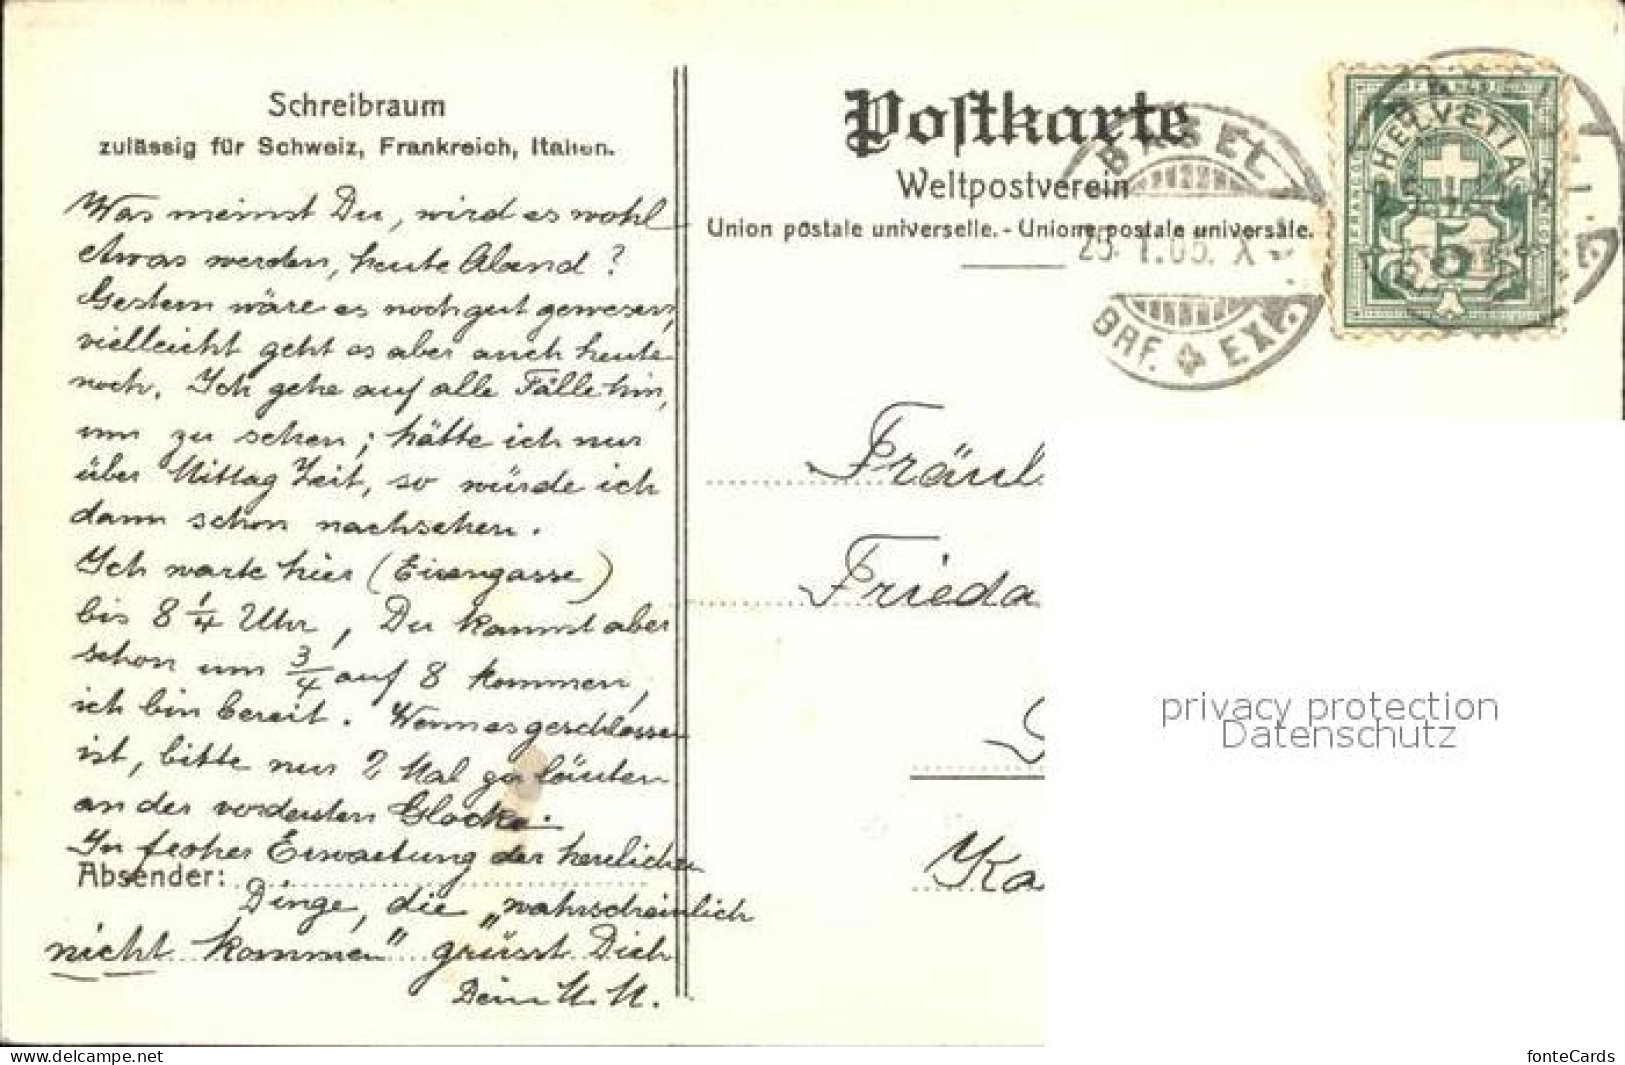 Schreibraum
zulässig für Schweiz, Frankreich, Italien.
Was meinst Du, wird es wohl
etwas werden, heute Abend?
Gestern wäre es noch gut gewesen,
vielleicht geht es aber auch heute
noch. Ich gehe auf alle Fälle hin,
um zu sehen; hätte ich nur
über Mittag Zeit, so würde ich
dann schon nachsehen.
Ich warte hier (Eisengasse)
bis 8 1/4 Uhr, Du kannst aber
schon um 3/4 auf 8 kommen,
ich bin bereit. Wenn es geschlossen
ist, bitte nur 2 Mal zu läuten
an der vordersten Glocke.
In froher Erwartung der herrlichen
Absender:
Dinge, die „wahrscheinlich
nicht kommen" grüsst Dich
Dein M. M.
Postkarte
Weltpostverein
Union postale universelle. - Unione postale universale.
BASEL
25. 1.05. X -
BRF. EX.
HELVETIA
FRANCO
5
Fräul
Frieda
Ka
privacy protection
Datenschutz
https://www.ansichtskartenversand.com
fonteCards